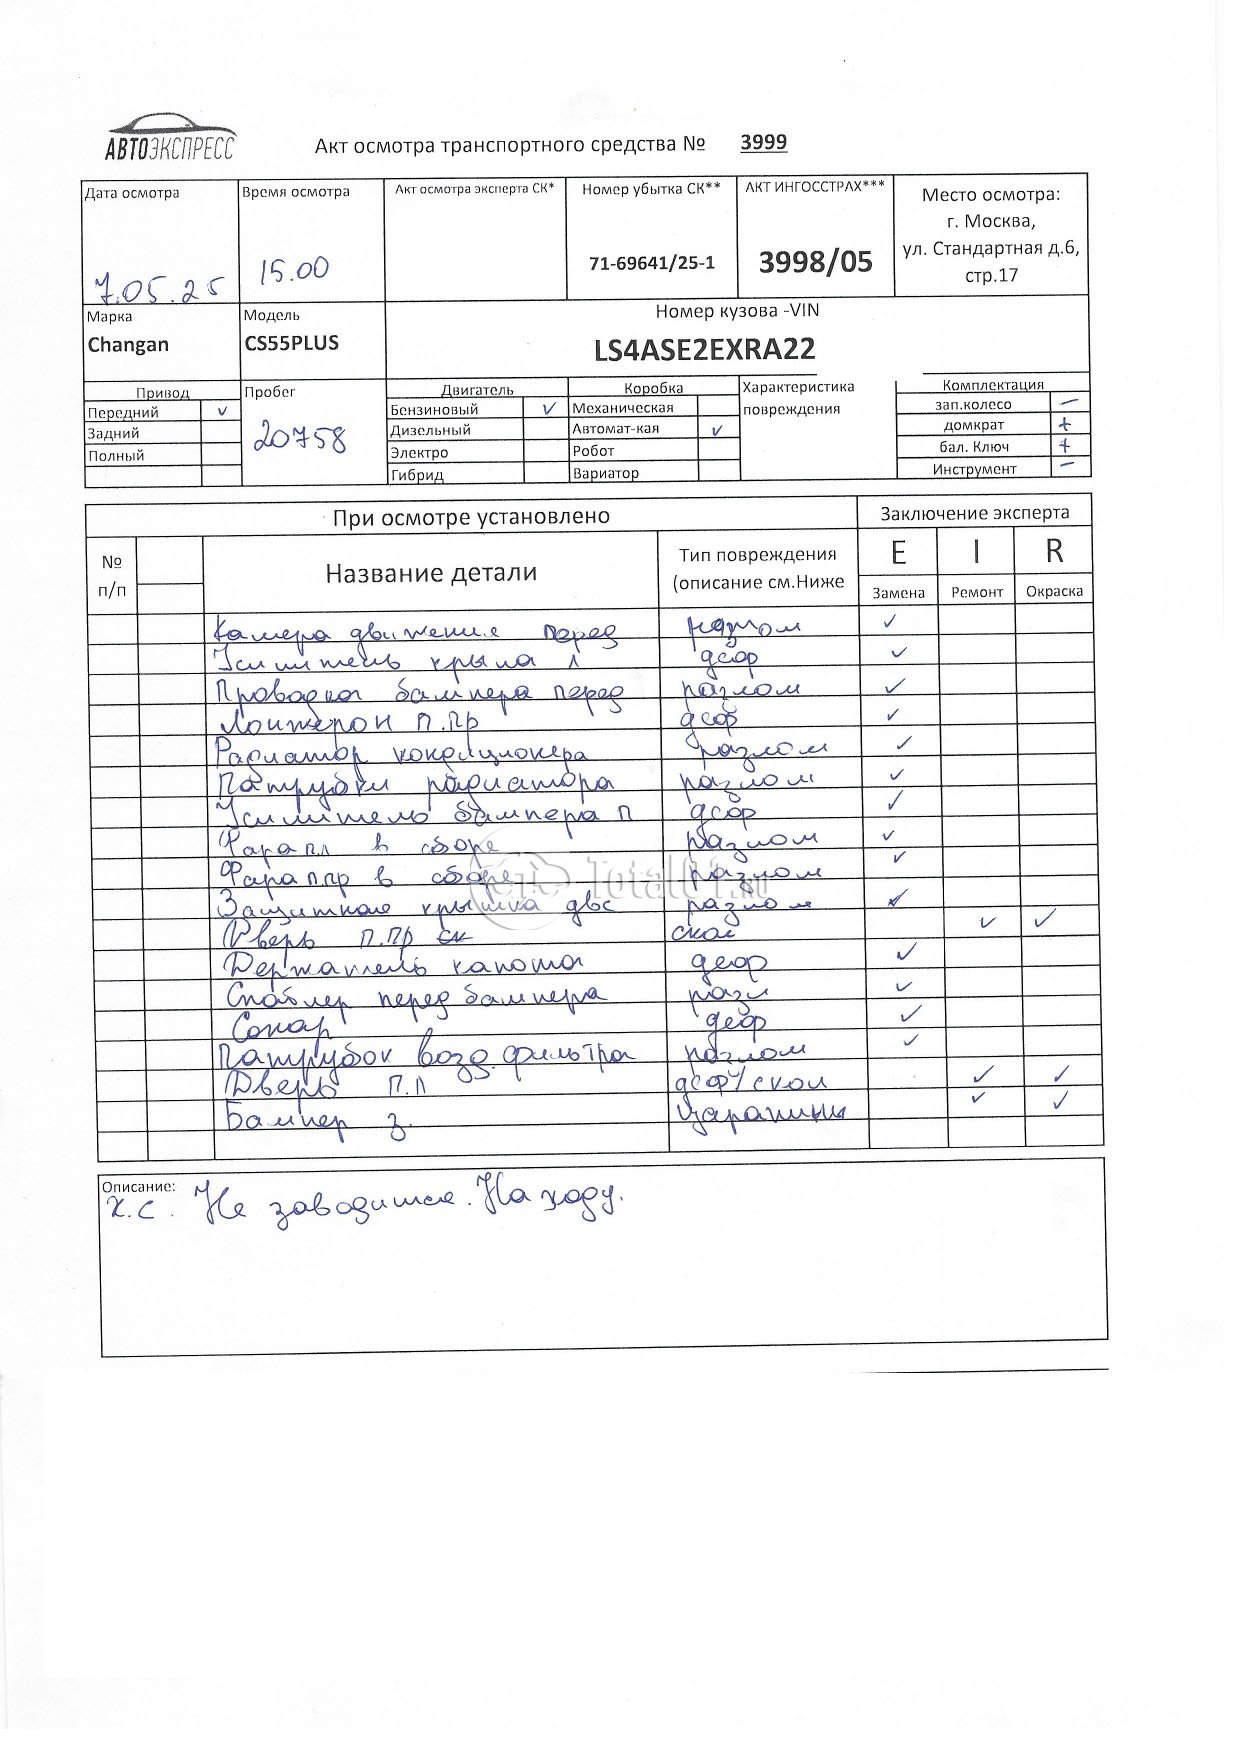 АВТОЭКСПРЕСС
Акт осмотра транспортного средства № 3999
Дата осмотра
7.05.25
Время осмотра
15.00
Акт осмотра эксперта СК*
Номер убытка СК**
71-69641/25-1
АКТ ИНГОССТРАХ***
3998/05
Место осмотра:
г. Москва,
ул. Стандартная д.6,
стр.17
Марка
Changan
Модель
CS55PLUS
Номер кузова -VIN
LS4ASE2EXRA22
Привод
Передний v
Задний
Полный
Пробег
20758
Двигатель
Бензиновый v
Дизельный
Электро
Гибрид
Коробка
Механическая
Автомат-кая v
Робот
Вариатор
Характеристика
повреждения
Комплектация
зап.колесо –
домкрат +
бал. Ключ +
Инструмент –
При осмотре установлено
Заключение эксперта
№
п/п
Название детали
Тип повреждения
(описание см.Ниже
E I R
Замена Ремонт Окраска
Камера движения перед v
Усилитель крыла л деор v
Проводка бампера перед разлом v
Лонжерон П.ПР деф v
Радиатор кондиционера разлом v
Патрубки радиатора разлом v
Усилитель бампера П деор v
Фара п.л в сборе разлом v
Фара п.пр в сборе разлом v
Защитная крышка двс разлом v
Дверь П.ПР ск скол v v
Держатель капота деор v
Спойлер перед бампера разл v
Сонар деор v
Патрубок возд. фильтра разлом v
Дверь П.Л деф/скол v v
Бампер з. царапины v v
Total01.ru
Описание:
Х.С. Не заводится. На ходу.